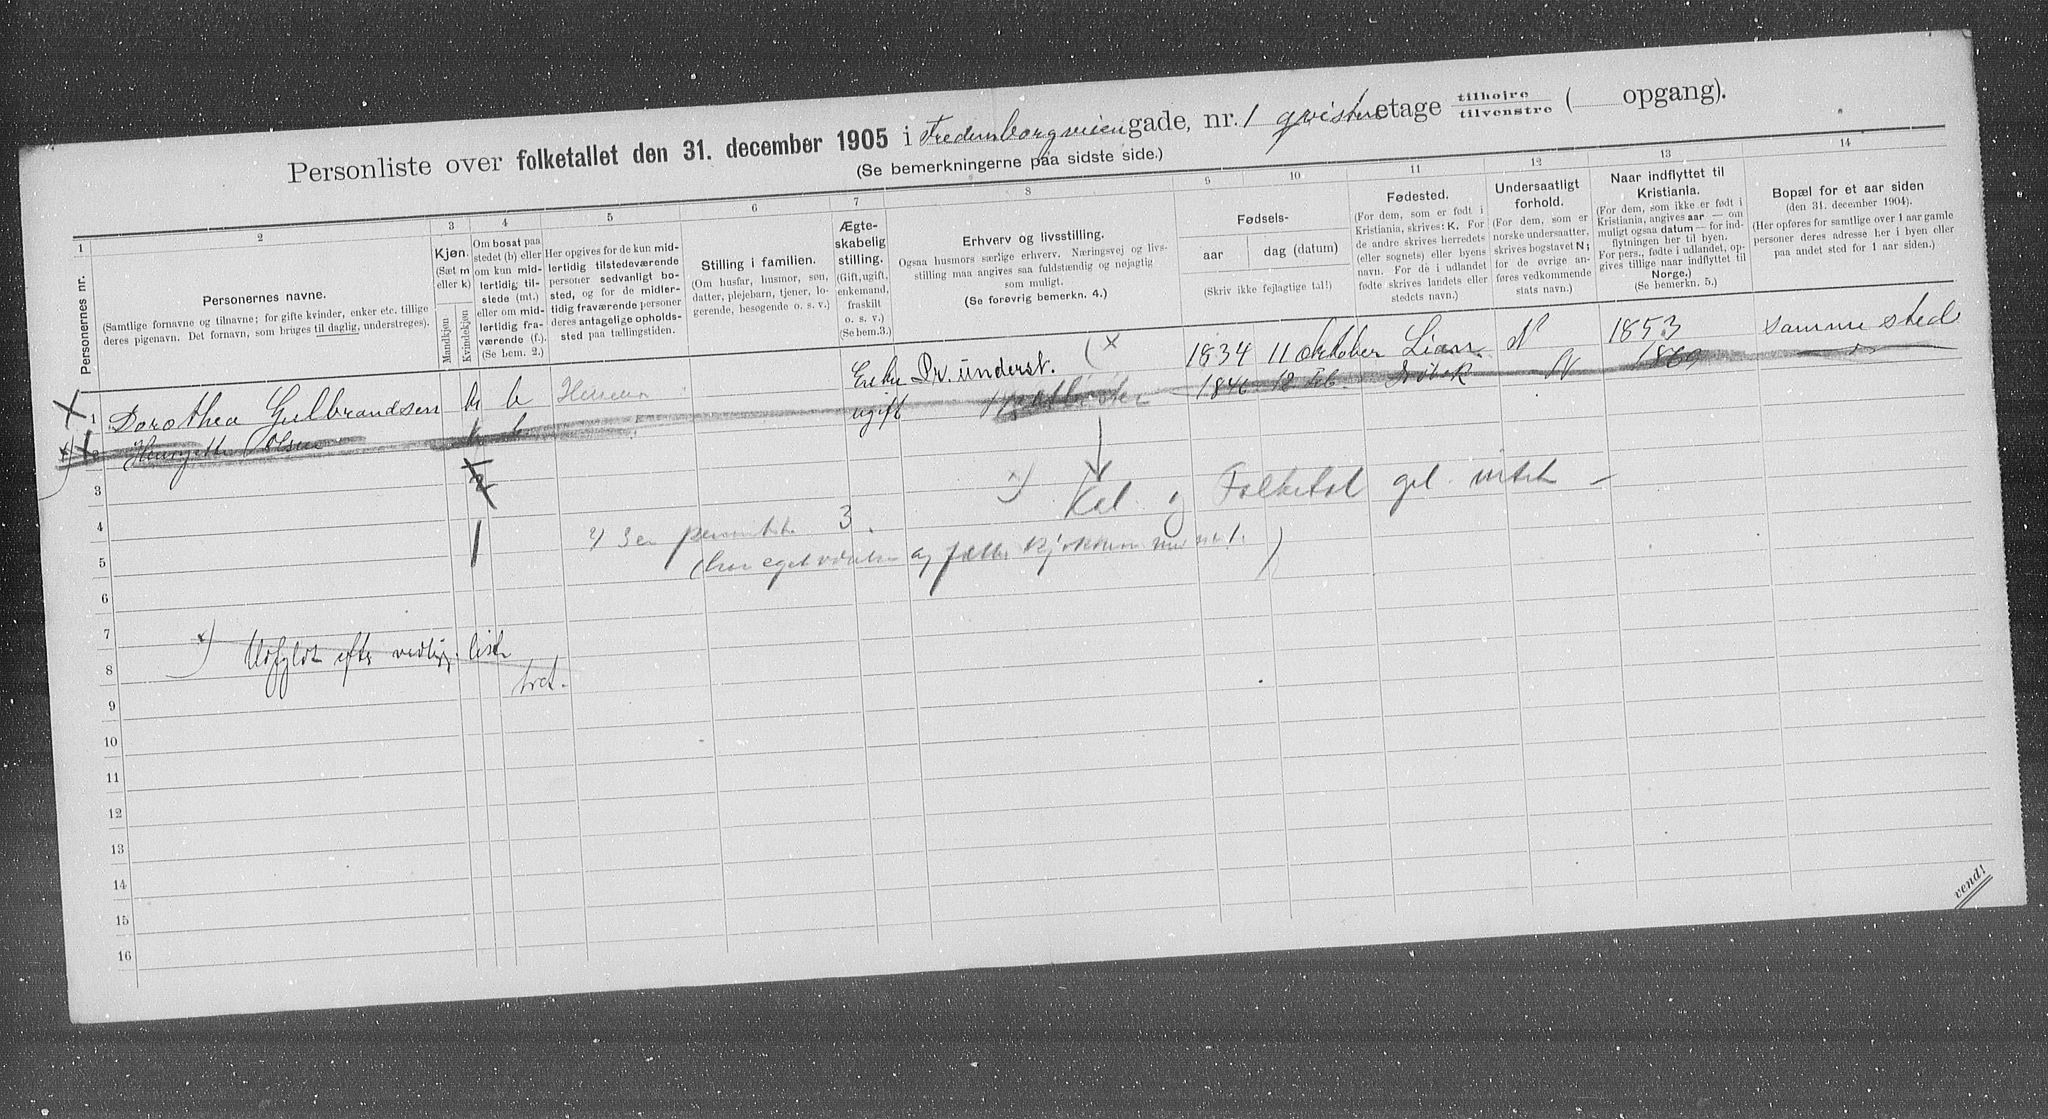 Personliste over folketallet den 31. december 1905 i Fredensborgveien gade, nr. 1 qvisten etage tilhøire tilvenstre ( opgang).
(Se bemerkningerne paa sidste side.)
1 2 3 4 5 6 7 8 9 10 11 12 13 14
Personernes nr.
Personernes navne.
(Samtlige fornavne og tilnavne; for gifte kvinder, enker etc. tillige deres pigenavn. Det fornavn, som bruges til daglig, understreges).
Kjøn.
(Sæt m eller k)
Mandkjøn
Kvindekjøn
Om bosat paa stedet (b) eller om kun midlertidig tilstede (mt.) eller om midlertidig fraværende (f.). (Se bem. 2.)
Her opgives for de kun midlertidig tilstedeværende personer sedvanligt bosted, og for de midlertidig fraværende personer deres antagelige opholdssted paa tællingstiden.
Stilling i familien.
(Om husfar, husmor, søn, datter, plejebarn, tjener, logerende, besøgende o. s. v.)
Ægteskabelig stilling.
(Gift, ugift, enkemand, fraskilt o. s. v.) (Se bem.3.)
Erhverv og livsstilling.
Ogsaa husmors særlige erhverv. Næringsvej og livsstilling maa angives saa fuldstændig og nøjagtig som muligt.
(Se forøvrig bemerkn. 4.)
Fødsels-
aar
dag (datum)
(Skriv ikke fejlagtige tal!)
Fødested.
(For dem, som er født i Kristiania, skrives: K. For de andre skrives herredets (eller sognets) eller byens navn. For de i udlandet fødte skrives landets eller stedets navn.)
Undersaatligt forhold.
(For dem, som er norske undersaatter, skrives bogstavet N; for de øvrige anføres vedkommende stats navn.)
Naar indflyttet til Kristiania.
(For dem, som ikke er født i Kristiania, angives aar — om muligt ogsaa datum — for indflytningen her til byen. For pers., fødte i udlandet, opgives tillige naar indflyttet til Norge.)
(Se bemerkn. 5.)
Bopæl for et aar siden
(den 31. december 1904).
(Her opføres for samtlige over 1 aar gamle personer deres adresse her i byen eller paa andet sted for 1 aar siden.)
X 1 Dorothea Gulbrandsen k b Enke Pr. underst. (x 1834 11 oktober Lier N 1853 samme sted
2 Henriette Olsen k b ugift 1846 12 Feb. Drøbak N 1869
3 2 x) Kal. Folketal gel. intet —
4
5 1 (har eget værelse og fælles kjøkken med nr. 1.)
6
7
8 x) Udfyldt efter vedligg. liste
9
10
11
12
13
14
15
16
vend!